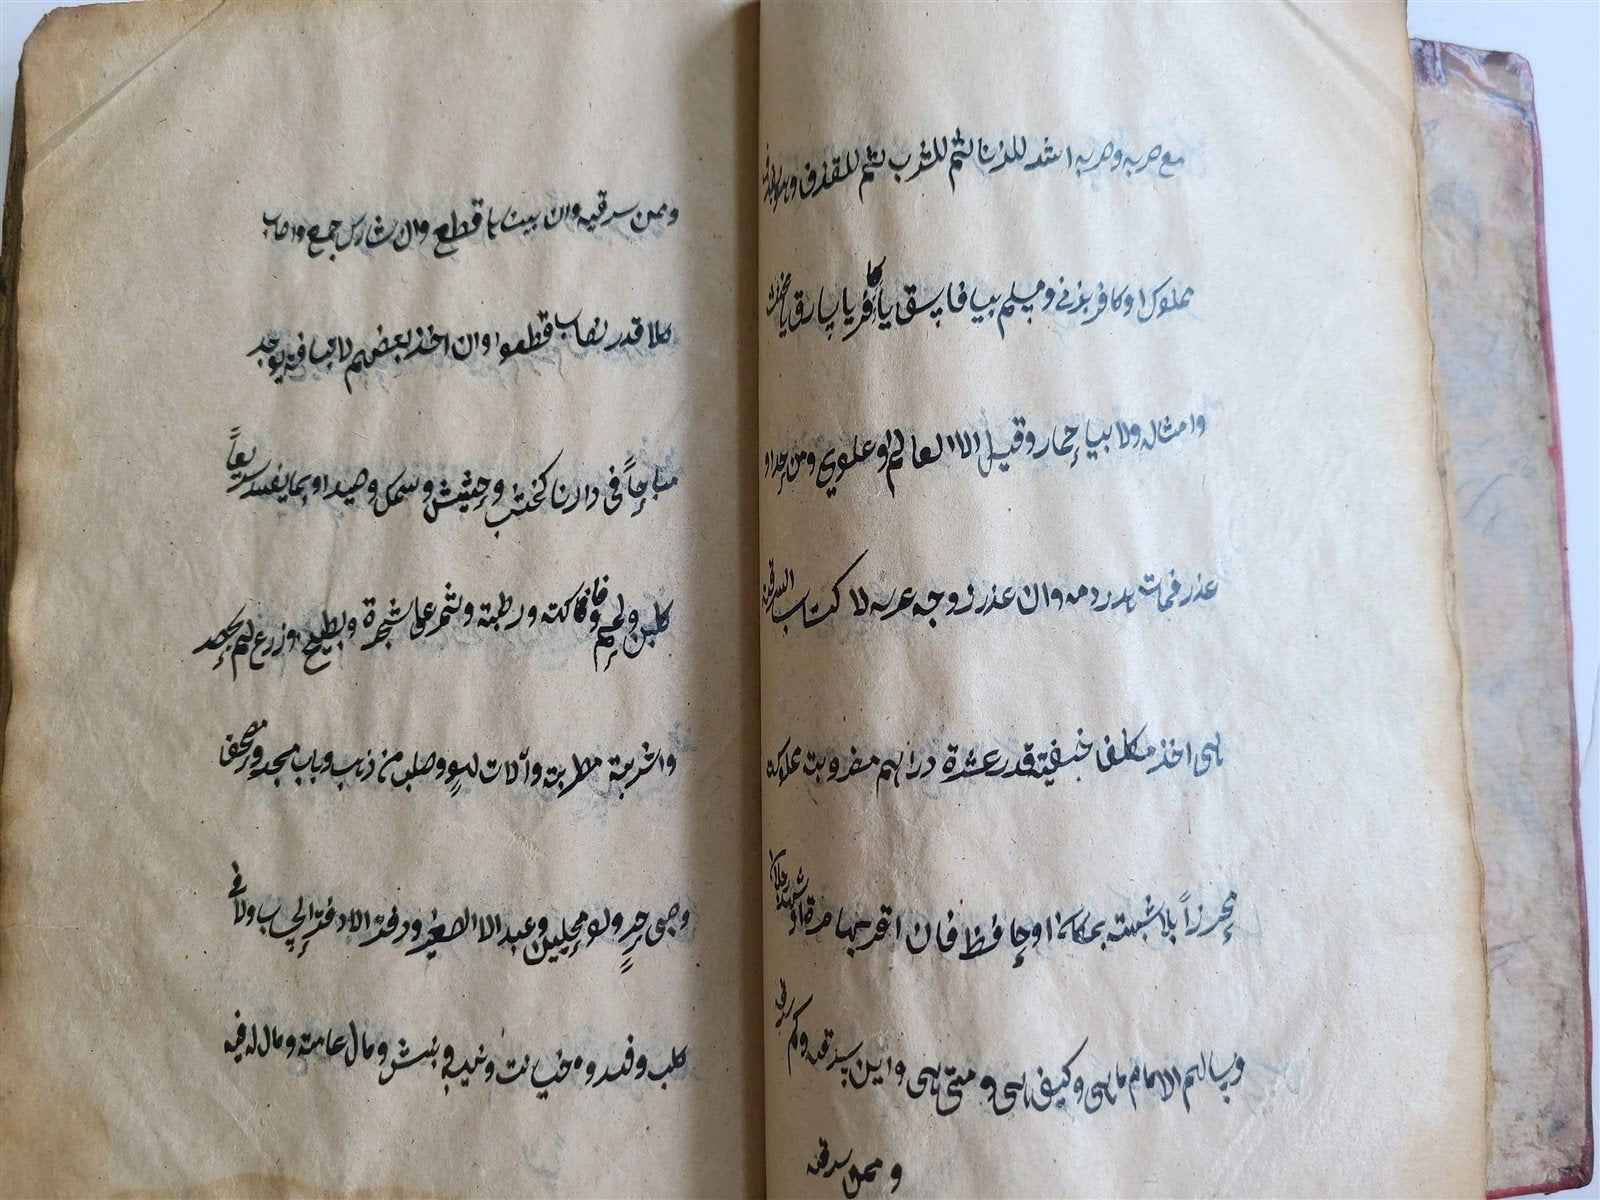 مع ضربه وضربه اشد للزنا ثم للشرب ثم للقذف و
مملوك او كافر بزنى ومسلم بيا فاسق يا كافر يا سارق يا مخنث
وامثاله ولا بيا حمار وقيل الا العالم او علوى ومن حد او
عزر فمات هدر دمه وان عزر زوجه عرسه لا كتاب السرقة
هى اخذ مكلف خفية قدر عشرة دراهم مضروبة مملوكة
محرزاً بلا شبهة بمكان او حافظ فان اقر بها مرة او شهد رجلان
وسالهم الامام ما هى وكيف هى و متى هى واين سرقه وكم سرق
و ممن سرقه
وممن سرقه وان بينا ها قطع وان شارك جمع واصاب
كلا قدر نصاب قطعوا وان اخذ بعضهم لا بتافه يوجد
مباحاً فى دارنا كخشب وحشيش وسمك وصيد او بما يفسد سريعاً
كلبن ولحم وفاكهة ورطبة وثمر على شجرة وبطيخ وزرع لم يحصد
واشربة مطربة وآلات لهو وصليب من ذهب وباب مسجد ومصحف
وصبى حر ولو محليين وعبد الا الصغير ودفتر الا دفتر الحساب ولا فى
كلب وفهد و خيانت ونهب ونبش ومال عامة ومال له فيه